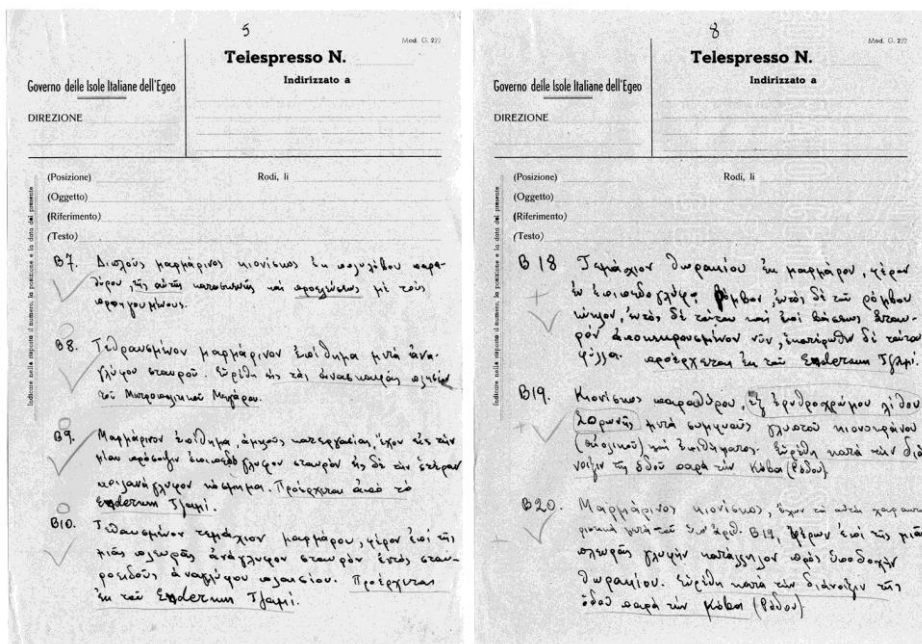 5
Mod. G. 272
Telespresso N.
Indirizzato a
Governo delle Isole Italiane dell'Egeo
DIREZIONE
(Posizione)
Rodi, li
(Oggetto)
(Riferimento)
(Testo)
Indicare nella risposta il numero, la posizione e la data del presente
B7. Διπλοῦς μαρμάρινος κιονίσκος ἐκ πολυλόβου παρα-
θύρου, τῆς αὐτῆς κατασκευῆς καὶ προελεύσεως μὲ τοὺς
προηγουμένους.
B8. Τεθραυσμένον μαρμάρινον ἐπίθημα μετὰ ἀνα-
γλύφου σταυροῦ. Εὑρέθη εἰς τὰς ἀνασκαφὰς πλησίον
τοῦ Μητροπολιτικοῦ Μεγάρου.
B9. Μαρμάρινον ἐπίθημα, ἀμελοῦς κατεργασίας, ἔχον εἰς τὴν
μίαν πρόσοψιν ἐπιπεδόγλυφον σταυρὸν εἰς δὲ τὴν ἑτέραν
κοιλανάγλυφον κόσμημα. Προέρχεται ἀπὸ τὸ
Enderum Τζαμί.
B10. Τεθραυσμένον τεμάχιον μαρμάρου, φέρον ἐπὶ τῆς
μιᾶς πλευρᾶς ἀνάγλυφον σταυρὸν ἐντὸς σταυ-
ροειδοῦς ἀναγλύφου πλαισίου. Προέρχεται
ἐκ τοῦ Enderum Τζαμί.
8
Mod. G. 272
Telespresso N.
Indirizzato a
Governo delle Isole Italiane dell'Egeo
DIREZIONE
(Posizione)
Rodi, li
(Oggetto)
(Riferimento)
(Testo)
Indicare nella risposta il numero, la posizione e la data del presente
B18 Τεμάχιον θωρακίου ἐκ μαρμάρου, φέρον
ἐν ἐπιπεδογλύφῳ ῥόμβον, ἐντὸς δὲ τοῦ ῥόμβου
κύκλον, ἐντὸς δὲ τούτου καὶ ἐπὶ βάσεως σταυ-
ρὸν ἀποκεκρουσμένον νῦν, ἑκατέρωθεν δὲ τούτου
φύλλα. προέρχεται ἐκ τοῦ Enderum Τζαμί.
B19. Κιονίσκος παραθύρου, ἐξ ἐρυθροχρώμου λίθου
Σορωνῆς μετὰ συμφυοῦς γλυπτοῦ κιονοκράνου
(αἰολικοῦ) καὶ ἐπιθήματος. Εὑρέθη κατὰ τὴν διά-
νοιξιν τῆς ὁδοῦ παρὰ τὴν Κόβα (Ρόδου)
B20. Μαρμάρινος κιονίσκος, ἔχων τὰ αὐτὰ χαρακτη-
ριστικὰ μετὰ τοῦ ὑπ' ἀριθ. B19, φέρων ἐπὶ τῆς μιᾶς
πλευρᾶς γλυφὴν κατάλληλον πρὸς ὑποδοχὴν
θωρακίου. Εὑρέθη κατὰ τὴν διάνοιξιν τῆς
ὁδοῦ παρὰ τὴν Κόβα (Ρόδου)